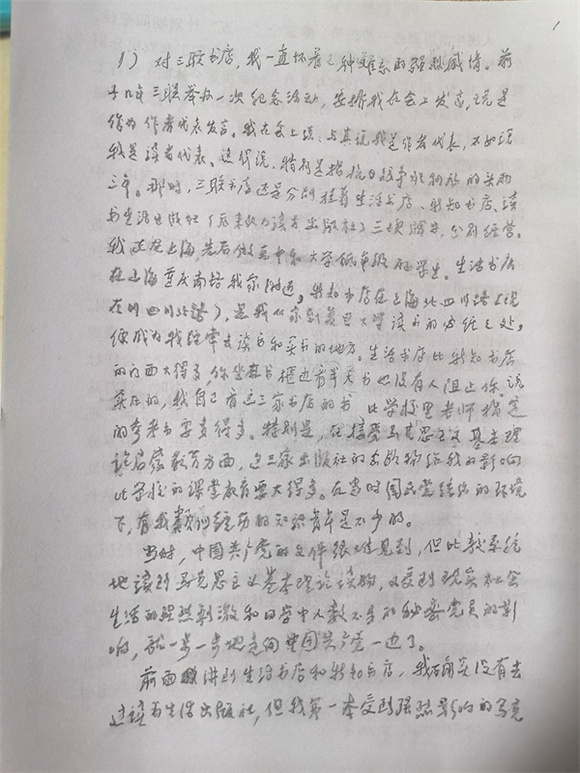 1
1) 对三联书店，我一直怀着一种难忘的强烈感情。前
些年三联举办一次纪念活动，安排我在会上发言，说是
作为作者代表发言。我在会上说，与其说我是作者代表，不如说
我是读者代表。这句话，特别是指抗日战争胜利后的头两
三年。那时，三联书店还是分别挂着生活书店、新知书店、读
书生活出版社（后来改为读书出版社）三块牌子，分别经营。
我正在上海先后做高中和大学低年级的学生。生活书店
在上海重庆南路我家附近，新知书店在上海北四川路（现
在叫四川北路），是我从家到复旦大学读书的必经之处，
便成为我经常去读书和买书的地方。生活书店比新知书店
的门面大得多，你坐在书柜边看半天书也没有人阻止你。说
实在的，我自己看这三家书店的书，比学校里老师指定
的参考书要多得多。特别是，在接受马克思主义基本理
论启蒙教育方面，这三家出版社的出版物给我的影响
比学校的课堂教育要大得多。在当时国民党统治的环境
下，有我类似经历的知识青年是不少的。
当时，中国共产党的文件很难见到，但比较系统
地读到马克思主义基本理论读物，又受到现实社会
生活的强烈刺激和同学中人数不多的秘密党员的影
响，就一步一步地走向中国共产党一边了。
前面讲到生活书店和新知书店，我确实没有去
过读书生活出版社，但我第一本受到强烈影响的马克